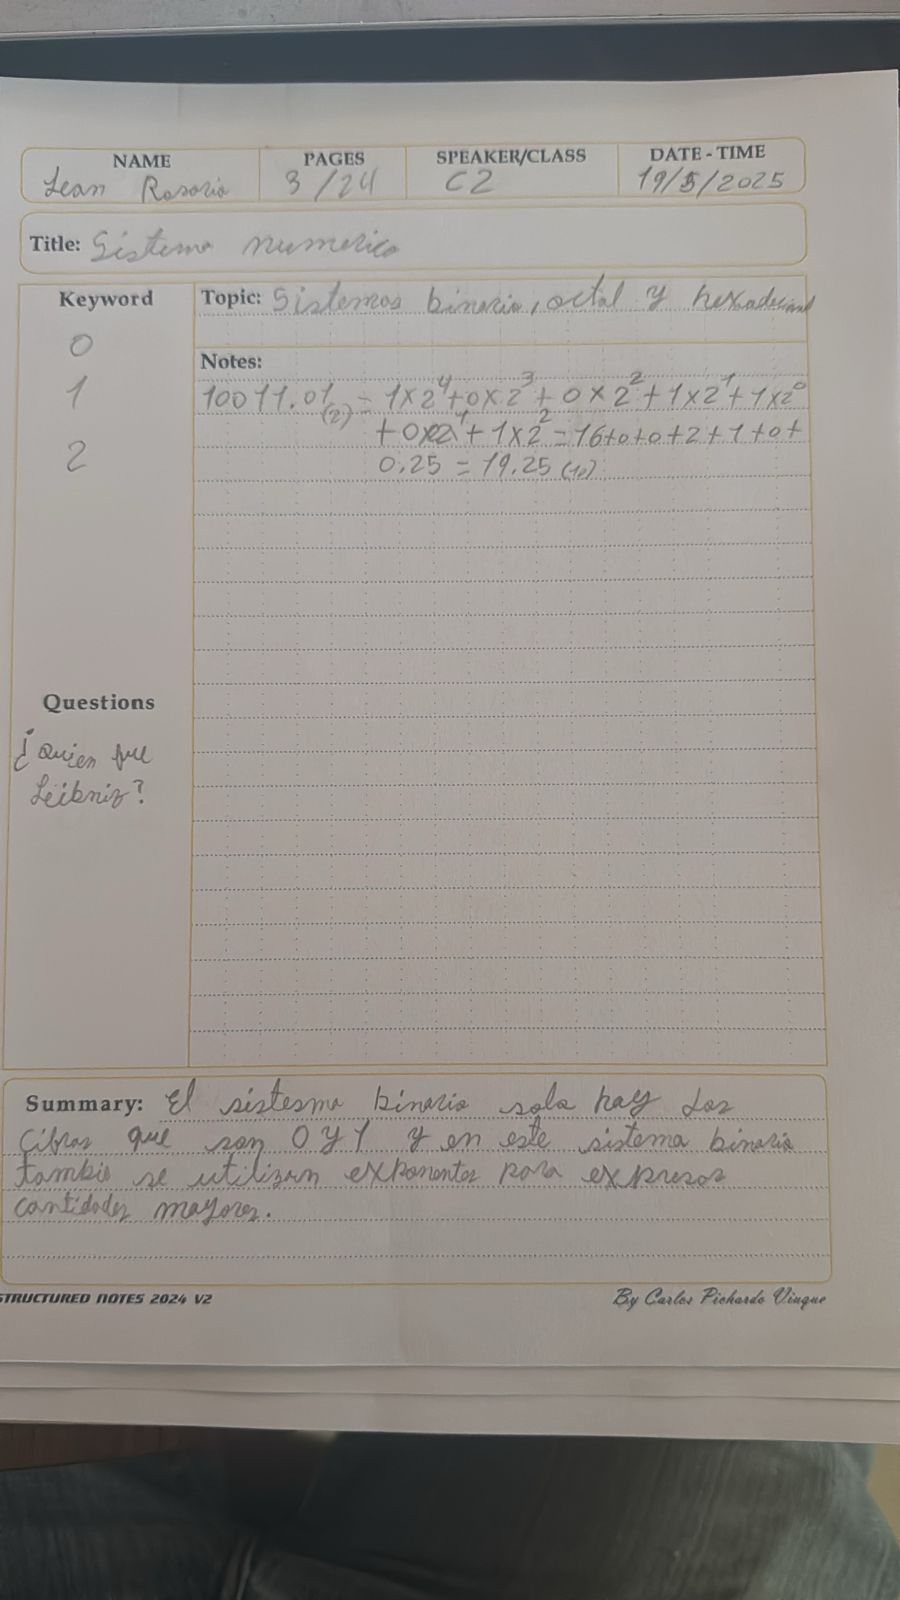 NAME PAGES SPEAKER/CLASS DATE-TIME
Lean Rosario 3/24 C2 19/5/2025
Title: Sistema numerico
Keyword
0
1
2
Topic: Sistemas binario, octal y hexadecimal
Notes:
10011.01(2) = 1x2⁴+0x2³+0x2²+1x2¹+1x2⁰
+0x2¹+1x2² = 16+0+0+2+1+0+
0.25 = 19.25 (10)
Questions
¿Quien fue
Leibniz?
Summary: El sistema binario solo hay dos
cifras que son 0 y 1 y en este sistema binario
tambie se utilizan exponentes para expresar
cantidades mayores.
STRUCTURED NOTES 2024 V2
By Carlos Pichardo Viuque